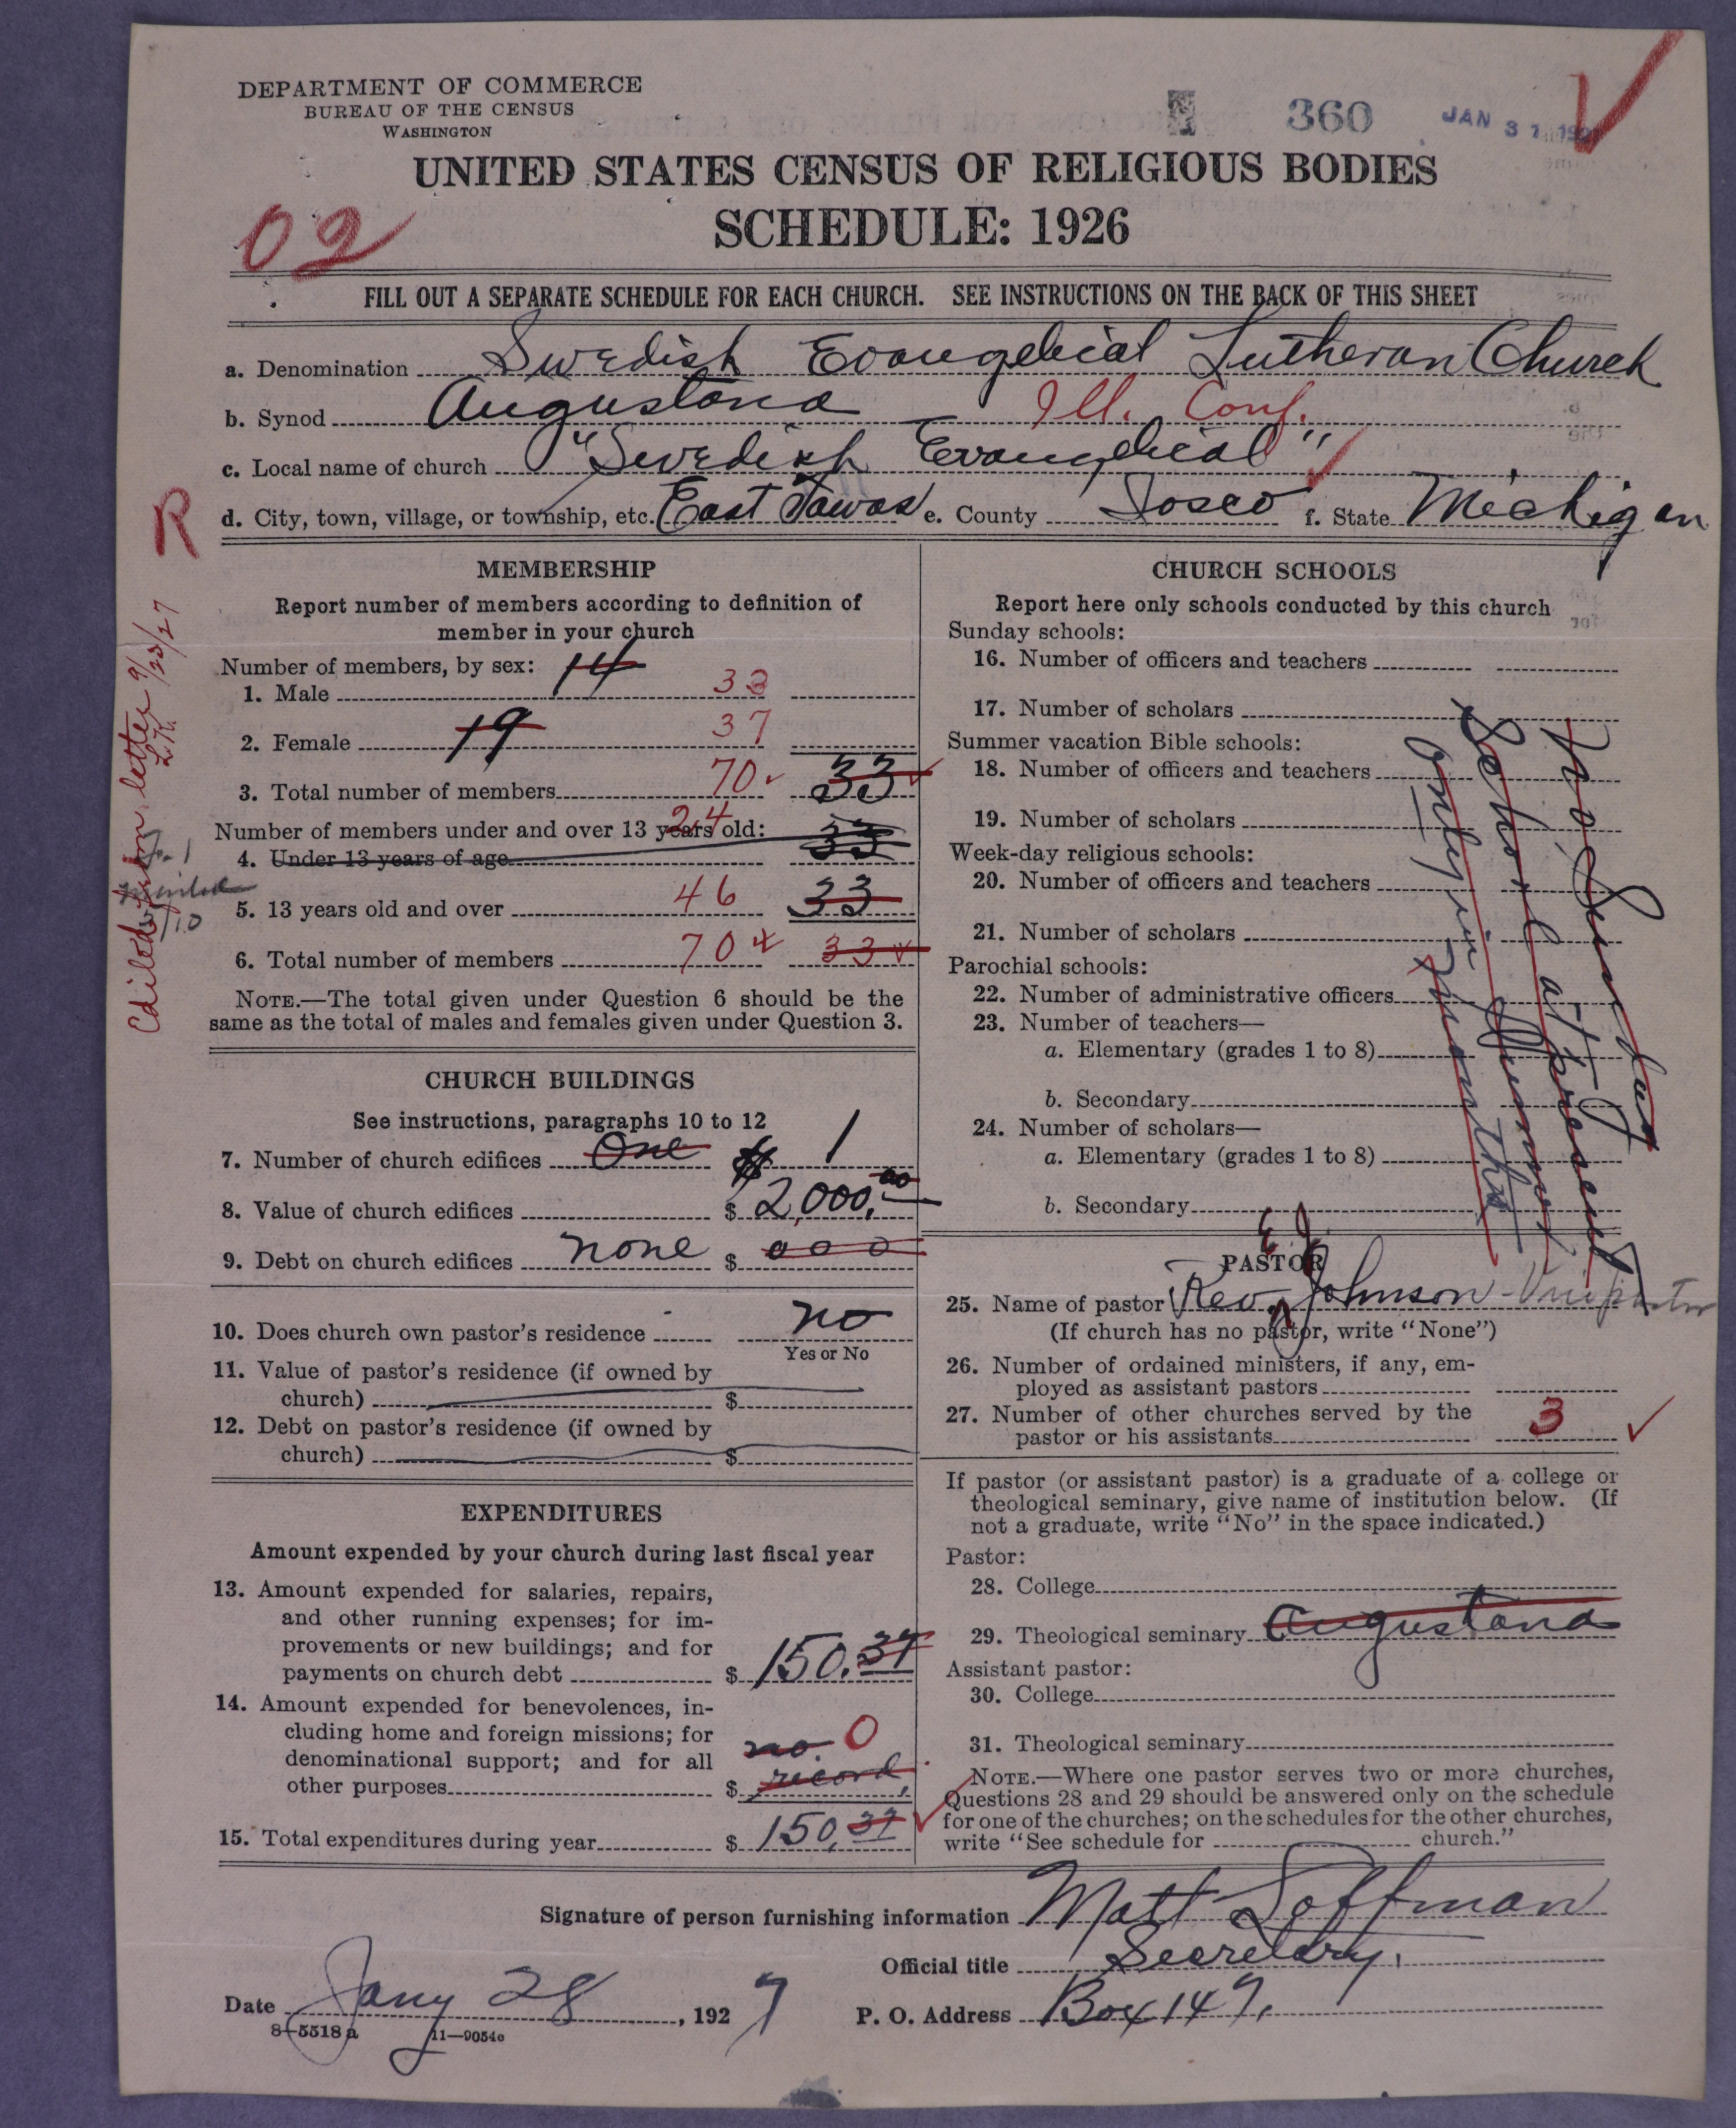 DEPARTMENT OF COMMERCE
BUREAU OF THE CENSUS
WASHINGTON
360
JAN 31
UNITED STATES CENSUS OF RELIGIOUS BODIES
SCHEDULE: 1926
02
FILL OUT A SEPARATE SCHEDULE FOR EACH CHURCH. SEE INSTRUCTIONS ON THE BACK OF THIS SHEET
a. Denomination Swedish Evangelical Lutheran Church
b. Synod Augustana Ill. Conf.
c. Local name of church "Swedish Evangelical"
d. City, town, village, or township, etc. East Tawas e. County Iosco f. State Michigan
R
MEMBERSHIP
Report number of members according to definition of
member in your church
Number of members, by sex: 14
1. Male 33
2. Female 19 37
3. Total number of members 70 33
Number of members under and over 13 years old: 24 33
4. Under 13 years of age
5. 13 years old and over 46 33
6. Total number of members 70 33
NOTE.—The total given under Question 6 should be the
same as the total of males and females given under Question 3.
letter 9/23/27
CHURCH BUILDINGS
See instructions, paragraphs 10 to 12
7. Number of church edifices One 1
8. Value of church edifices $ 2,000.00
9. Debt on church edifices none $ 000
10. Does church own pastor's residence no
Yes or No
11. Value of pastor's residence (if owned by
church) $
12. Debt on pastor's residence (if owned by
church) $
EXPENDITURES
Amount expended by your church during last fiscal year
13. Amount expended for salaries, repairs,
and other running expenses; for im-
provements or new buildings; and for
payments on church debt $ 150.37
14. Amount expended for benevolences, in-
cluding home and foreign missions; for
denominational support; and for all
other purposes $ no record 0
15. Total expenditures during year $ 150.37
CHURCH SCHOOLS
Report here only schools conducted by this church
Sunday schools:
16. Number of officers and teachers
17. Number of scholars
Summer vacation Bible schools:
18. Number of officers and teachers
19. Number of scholars
Week-day religious schools:
20. Number of officers and teachers
21. Number of scholars
Parochial schools:
22. Number of administrative officers
23. Number of teachers—
a. Elementary (grades 1 to 8)
b. Secondary
24. Number of scholars—
a. Elementary (grades 1 to 8)
b. Secondary
No Sunday
School at present
only in Summer
months
PASTOR
25. Name of pastor Rev. Johnson
(If church has no pastor, write "None")
26. Number of ordained ministers, if any, em-
ployed as assistant pastors
27. Number of other churches served by the
pastor or his assistants 3
If pastor (or assistant pastor) is a graduate of a college or
theological seminary, give name of institution below. (If
not a graduate, write "No" in the space indicated.)
Pastor:
28. College
29. Theological seminary Augustana
Assistant pastor:
30. College
31. Theological seminary
NOTE.—Where one pastor serves two or more churches,
Questions 28 and 29 should be answered only on the schedule
for one of the churches; on the schedules for the other churches,
write "See schedule for church."
Signature of person furnishing information Matt Loffman
Official title Secretary.
Date Jany 28, 1927 P. O. Address Box 147.
8-5518a 11—9054c